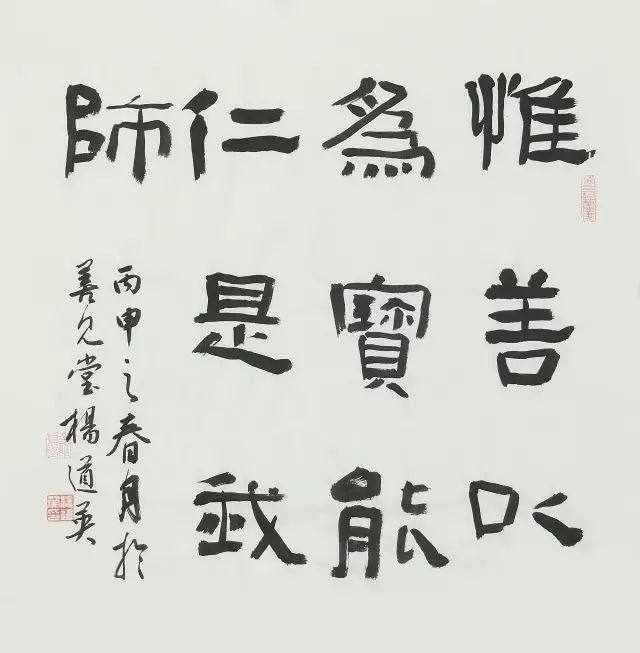 惟善以
為寶能
仁是我
師
丙申之春月於
善見堂楊道英